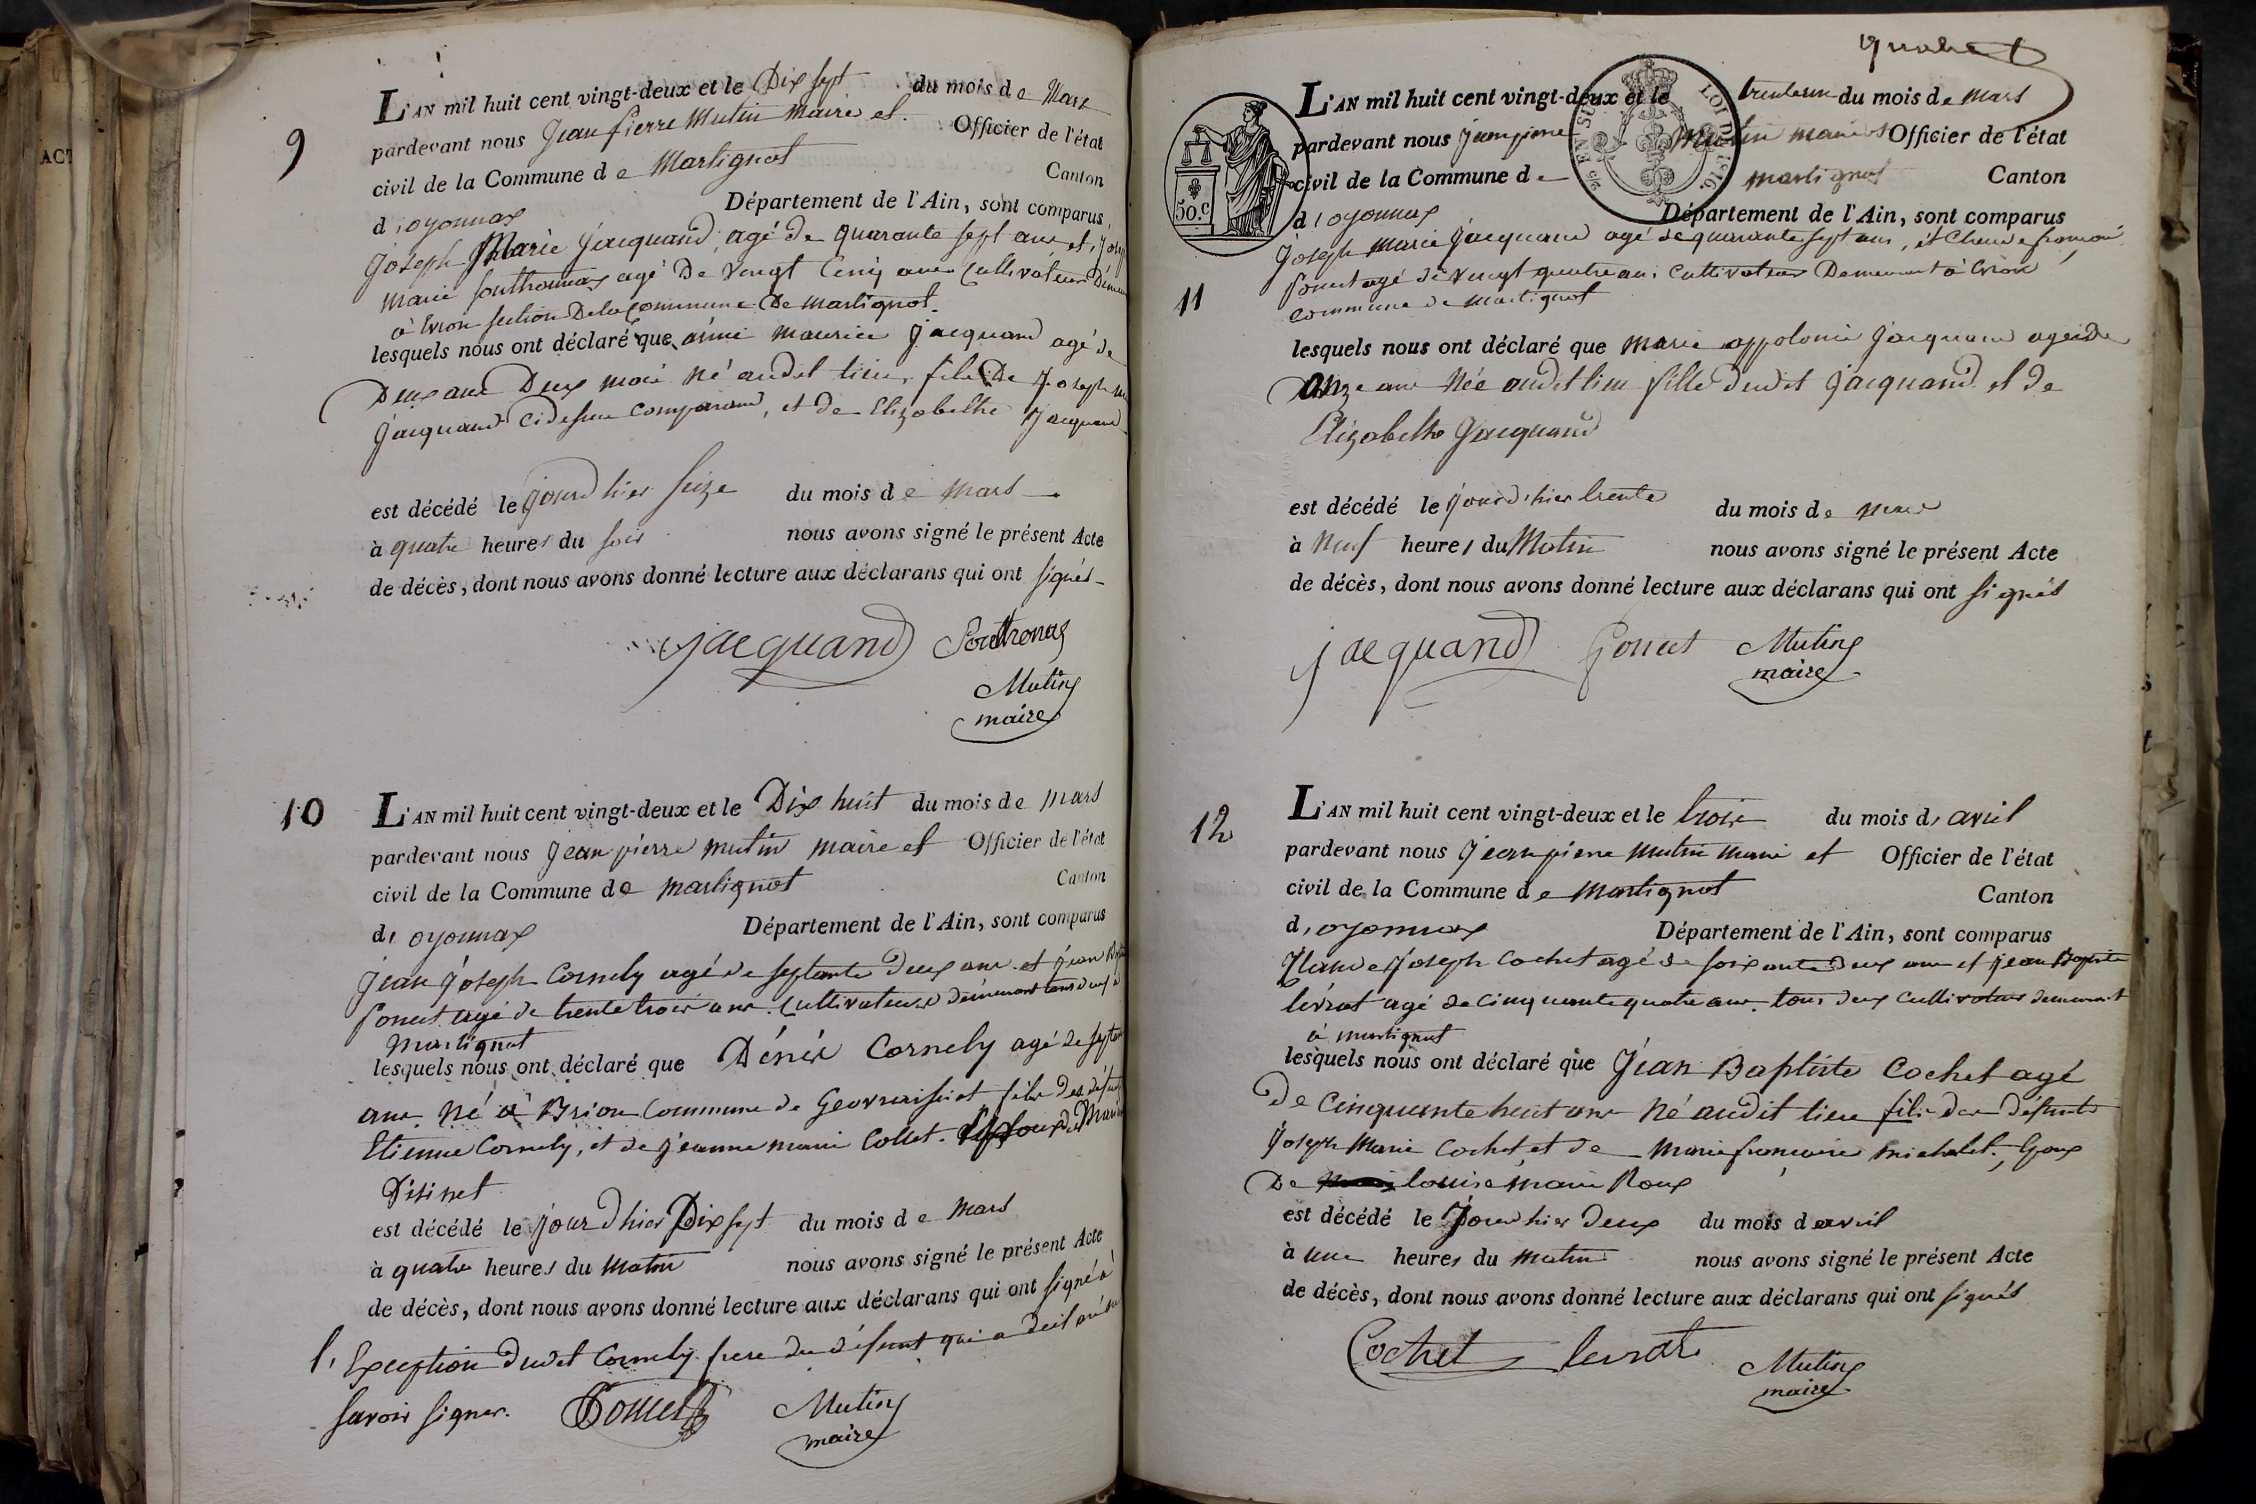 ACT
9
L'AN mil huit cent vingt-deux et le Dix sept du mois de Mars
pardevant nous Jean pierre Mutin Maire et Officier de l'état
civil de la Commune de Martignat Canton
d'oyonnax Département de l'Ain, sont comparus
Joseph Marie Jacquand agé de quarante sept ans et
marie Southonnax agé De vingt Cinq ans Cultivateurs
à Evron section De la Commune De Martignat.
lesquels nous ont déclaré que aimé maurice Jacquand agé de
Deux ans Deux mois né audit lieu, fils De Joseph
Jacquand Cidessus Comparant, et de Elizabethe Jacquand
est décédé le jourd'hier Seize du mois de Mars
à quatre heures du soir nous avons signé le présent Acte
de décès, dont nous avons donné lecture aux déclarans qui ont signés
jacquand Southonnax
Mutin
maire
10
L'AN mil huit cent vingt-deux et le Dix huit du mois de Mars
pardevant nous Jean pierre mutin maire et Officier de l'état
civil de la Commune de Martignat Canton
d'oyonnax Département de l'Ain, sont comparus
Jean Joseph Cornely agé de septante Deux ans et jean
Poncet agé de trente trois ans Cultivateurs demeurant tous deux à
Martignat
lesquels nous ont déclaré que Dénis Cornely agé de
ans né à Brion Commune de Geovraissiat fils des
Etienne Cornely, et de jeanne marie Collet.
est décédé le jour d'hier Dix sept du mois de Mars
à quatre heures du Matin nous avons signé le présent Acte
de décès, dont nous avons donné lecture aux déclarans qui ont signé à
l'Exception dudit Cornely frere du défunt qui a dit
savoir signer. Poncet Mutin
maire
quatre
L'AN mil huit cent vingt-deux et le trente un du mois de Mars
pardevant nous Jean pierre Mutin maire et Officier de l'état
civil de la Commune de Martignat Canton
d'oyonnax Département de l'Ain, sont comparus
EN SUS
LOI DE 1816
50.c
Joseph Marie Jacquand agé de quarante sept ans, et Claude françois
Poncet agé de vingt quatre ans Cultivateurs Demeurant à Evron
11
Commune de Martignat
lesquels nous ont déclaré que Marie appolonie Jacquand agée de
Onze ans Née audit lieu fille dudit Jacquand et de
Elizabethe Jacquand
est décédé le jourd'hier trente du mois de Mars
à Neuf heures du Matin nous avons signé le présent Acte
de décès, dont nous avons donné lecture aux déclarans qui ont signés
jacquand Poncet Mutin
maire
12
L'AN mil huit cent vingt-deux et le trois du mois d'avril
pardevant nous Jean pierre Mutin Maire et Officier de l'état
civil de la Commune de Martignat Canton
d'oyonnax Département de l'Ain, sont comparus
Claude Joseph Cochet agé de soixante Deux ans et Jean Baptiste
levrat agé de Cinquante quatre ans, tous Deux Cultivateurs demeurant
à Martignat
lesquels nous ont déclaré que Jean Baptiste Cochet agé
De Cinquante huit ans Né audit lieu fils des défunts
Joseph Marie Cochet et de Marie françoise Michalet, Epoux
De louise marie Roux
est décédé le Jourd'hier Deux du mois d'avril
à une heures du matin nous avons signé le présent Acte
de décès, dont nous avons donné lecture aux déclarans qui ont signés
Cochet levrat Mutin
maire